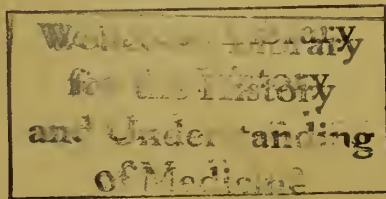 Library
for the History
and Understanding
of Medicine